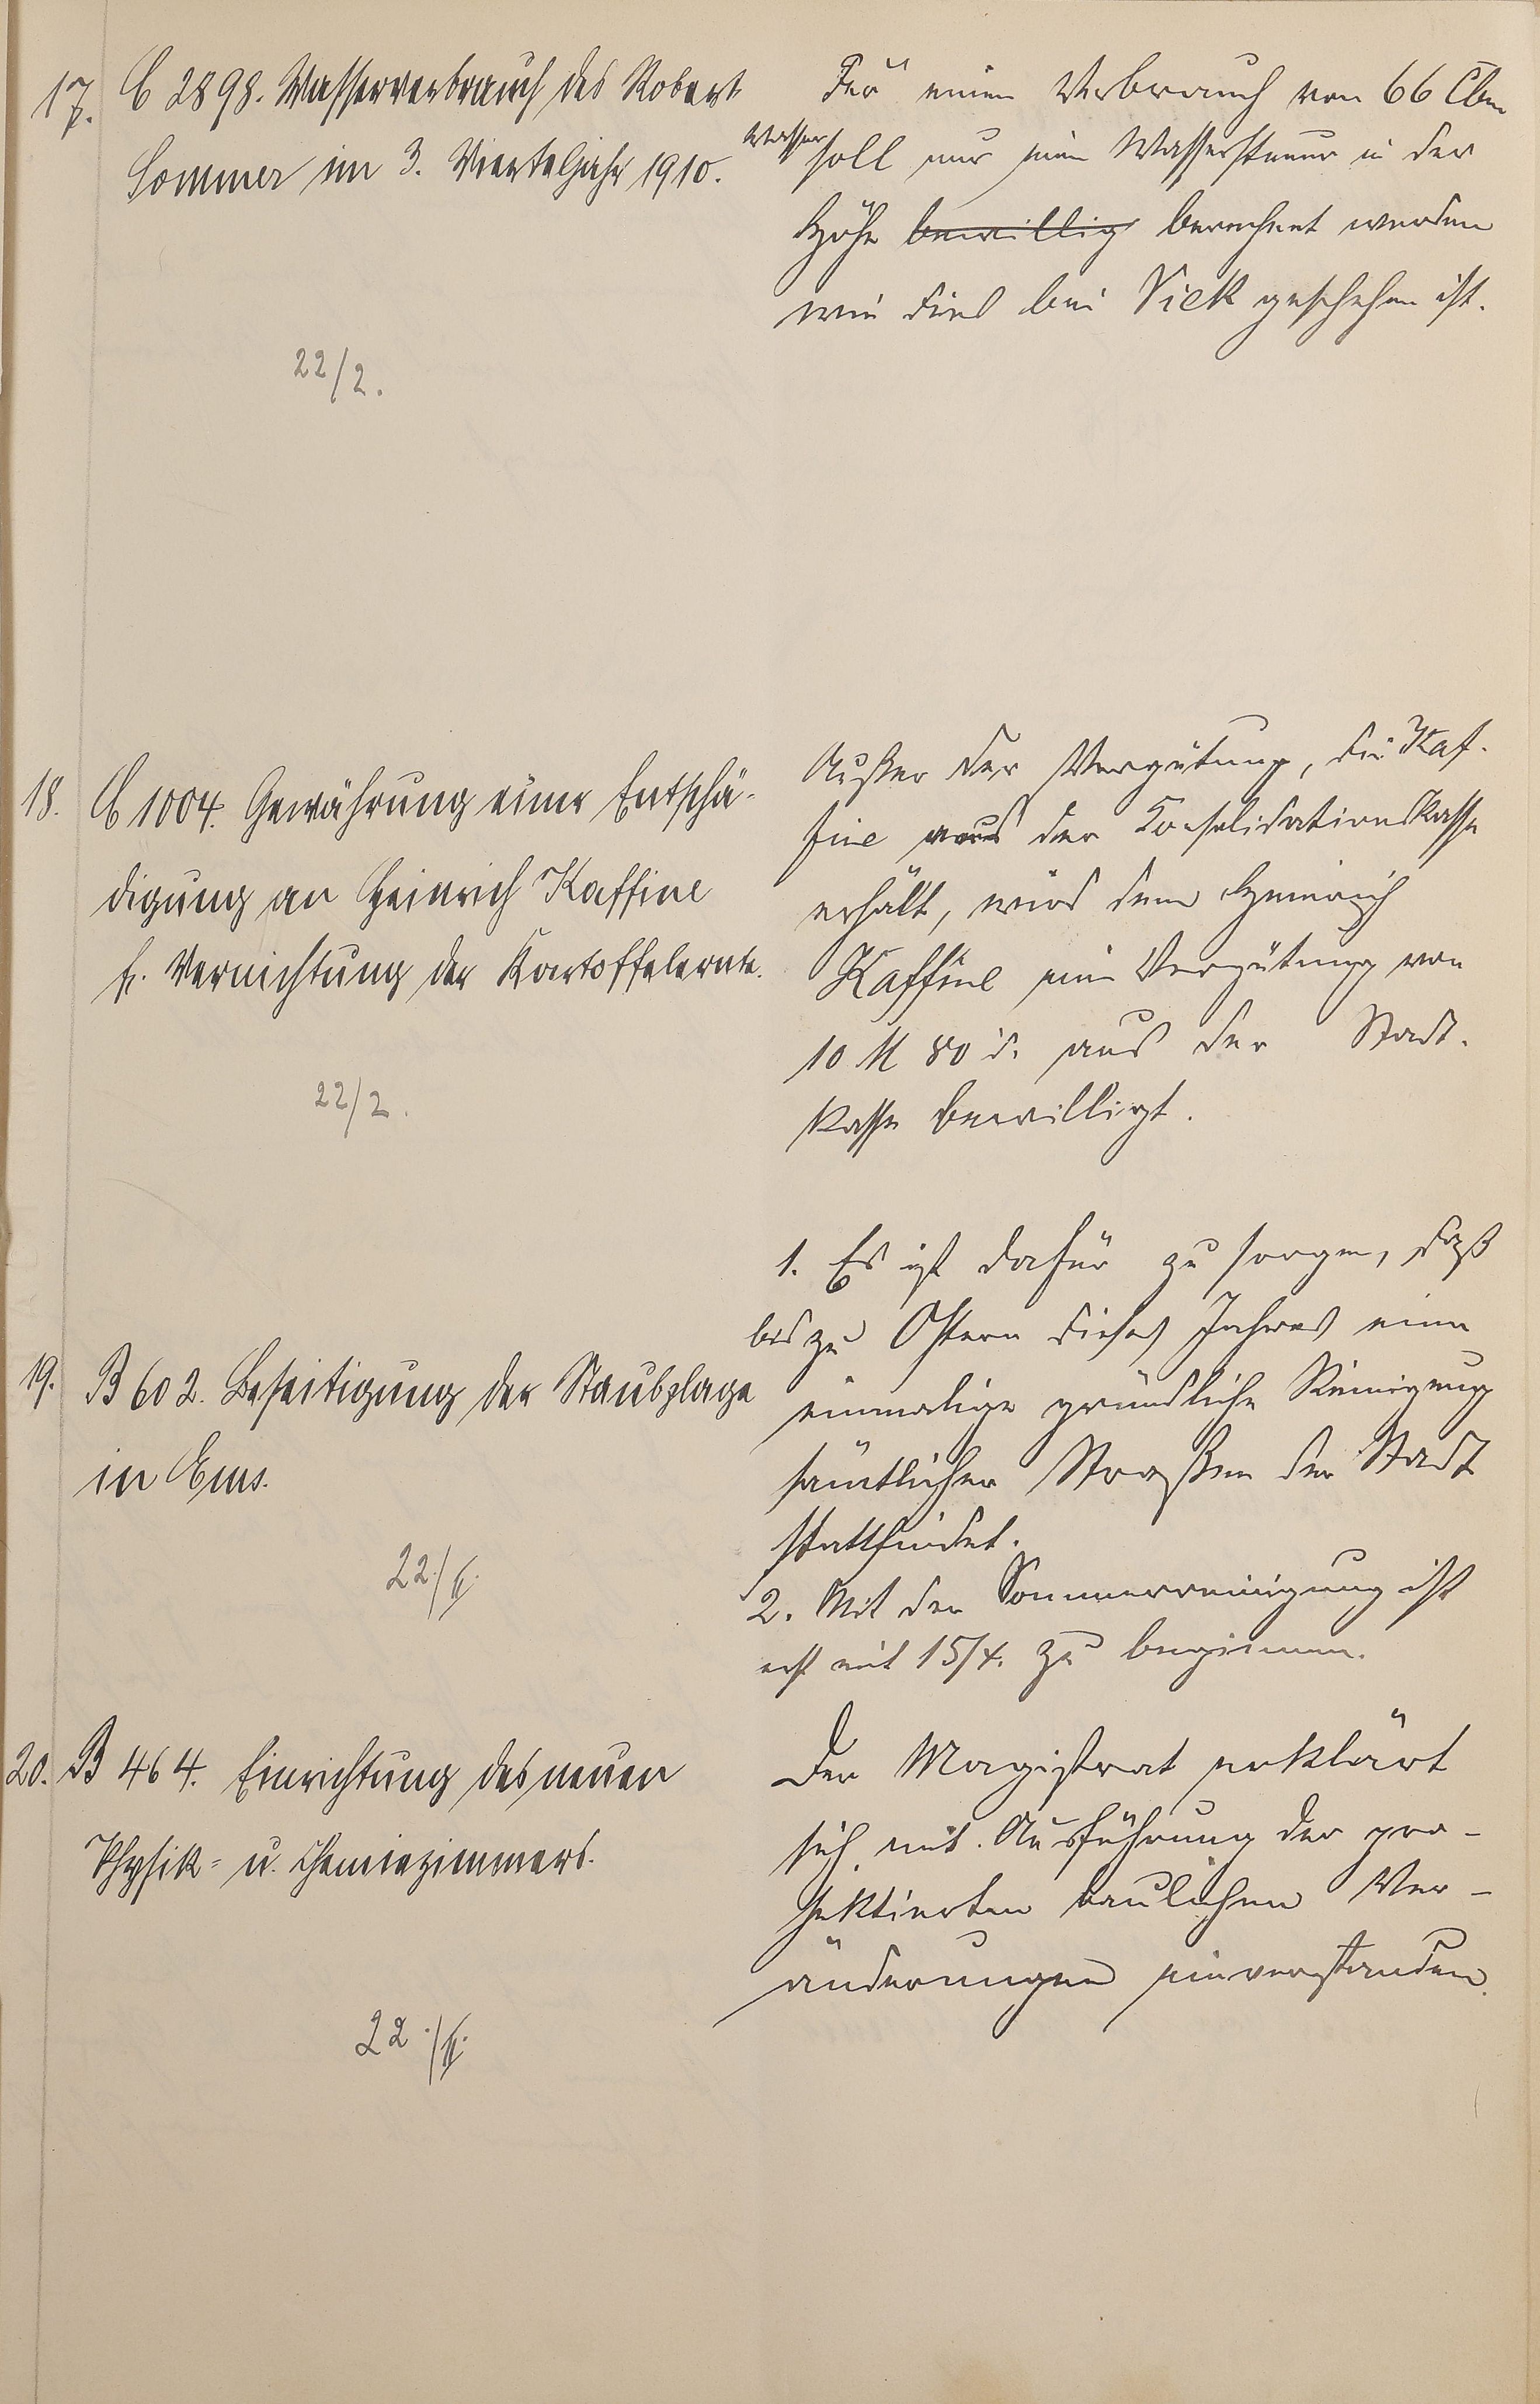 17. C 2898. Wasserverbrauch des Robert
Sommer im 3. Vierteljahr 1910.
22/2.
Für einen Verbrauch von 66 Cbm
Wasser soll nur eine Wassersteuer in der
Höhe bewillig berechnet werden
wie dies bei Sick geschehen ist.
18. C 1004. Gewährung einer Entschä-
digung an Heinrich Kaffine
f. Vernichtung der Kartoffelernte.
22/2.
Außer der Vergütung, die Kaf-
fine aus der Konsolidationskasse
erhält, wird dem Heinrich
Kaffine eine Vergütung von
10 M 80 d. aus der Stadt-
kasse bewilligt.
19. B 602. Beseitigung der Staubplage
in Ems.
22./II.
1. Es ist dafür zu sorgen, daß
bis zu Ostern dieses Jahres eine
einmalige gründliche Reinigung
sämtlicher Straßen der Stadt
stattfindet.
2. Mit der Sommerreinigung ist
erst mit 15/4. zu beginnen.
20. B 464. Einrichtung des neuen
Physik- u. Chemiezimmers.
22./II.
Der Magistrat erklärt
sich mit Ausführung der pro-
jektierten baulichen Ver-
änderungen einverstanden.